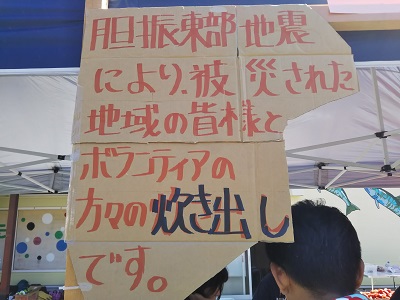 胆振東部地震
により、被災された
地域の皆様と
ボランティアの
方々の炊き出し
です。